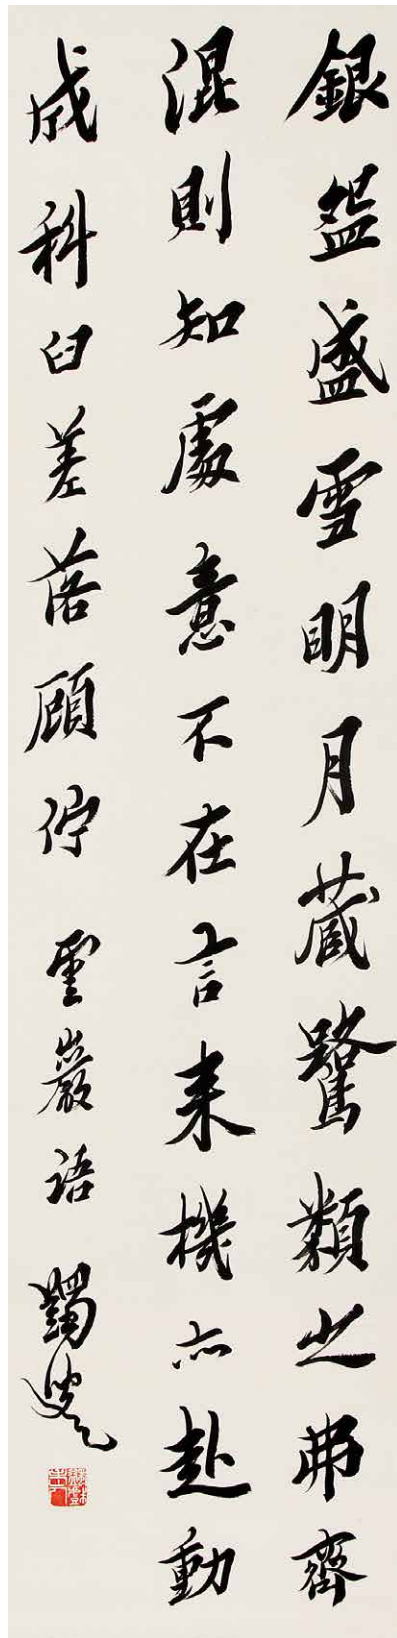 銀盌盛雪明月藏鷺類之弗齊
混則知處意不在言来機亦赴動
成科臼差落顧佇 雲巖語 蠲叟